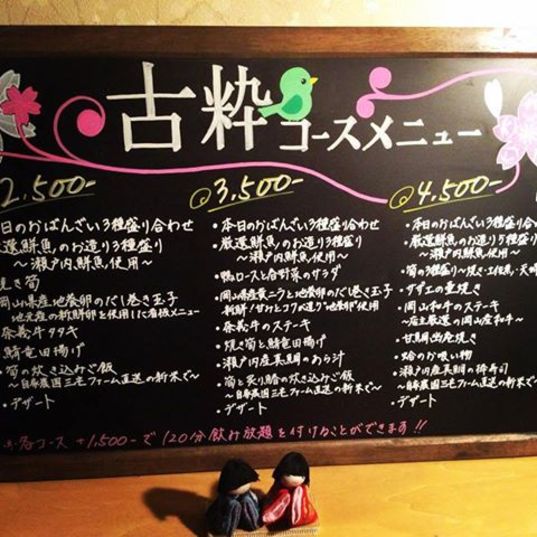 古粋 コースメニュー
2,500-
日のおばんざい3種盛り合わせ
選鮮魚のお造り3種盛り
～瀬戸内鮮魚使用～
焼き筍
岡山県産地養卵のだし巻き玉子
地元産の新鮮卵を使用した看板メニュー
奈義牛タタキ
鯖竜田揚げ
筍の炊き込みご飯
～自家農園三宅ファーム直送の新米で～
・デザート
@3,500-
・本日のおばんざい3種盛り合わせ
・厳選鮮魚のお造り3種盛り
～瀬戸内鮮魚使用～
・鴨ロースと春野菜のサラダ
・岡山県産黄ニラと地養卵のだし巻き玉子
新鮮!甘けとコクが違う"地養卵"使用
・奈義牛のステーキ
・焼き筍と鯖竜田揚げ
・瀬戸内産真鯛のあら汁
・筍と炙り鯖の炊き込みご飯
～自家農園三宅ファーム直送の新米で～
・デザート
@4,500-
・本日のおばんざい3種盛り合
・厳選鮮魚のお造り5種盛り
～瀬戸内鮮魚使用～
・筍の3種盛り～焼き・土佐煮・天
・サザエの壷焼き
・岡山和牛のステーキ
～店主厳選の岡山産和牛～
・甘鯛
・蛤のお吸い物
・瀬戸内産真鯛の棒寿司
～自家農園三宅ファーム直送の新米で～
・デザート
各コース +1,500-で120分飲み放題を付けることができます!!